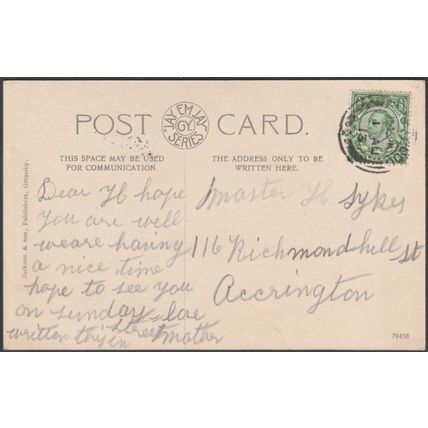 POST CARD.
"JAY EM JAY"
GY.
SERIES
THIS SPACE MAY BE USED
FOR COMMUNICATION.
THE ADDRESS ONLY TO BE
WRITTEN HERE.
Jackson & Son, Publishers, Grimsby.
Dear H hope
you are well
weare having
a nice time
hope to see you
on sunday love
written this in street
mother
Master H Sykes
116 Richmondhill St
Accrington
79458